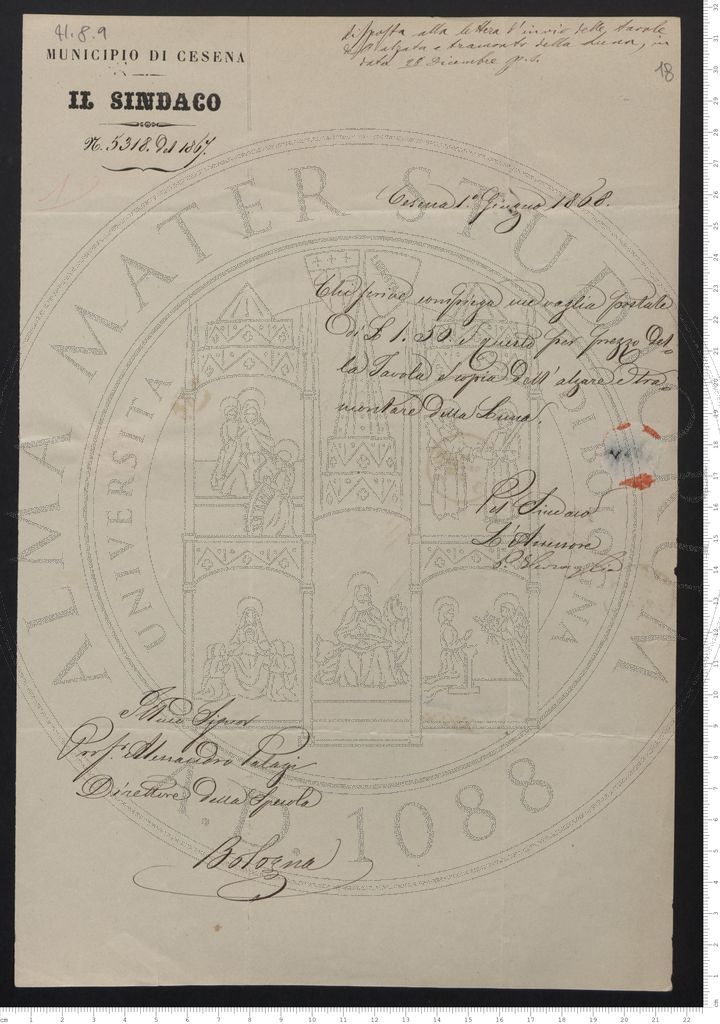 41.8.9
risposta alla lettera d'invio delle tavole
d'alzata e tramonto della Luna, in
data 28 Dicembre p.s.
18
MUNICIPIO DI CESENA
IL SINDACO
N. 5318. del 1867.
Cesena 1° Giugno 1868.
Chi scrive compiega un vaglia postale
di £ 1. 50. e questo per prezzo del-
la Tavola Copia dell'alzare e tra-
montare della Luna.
Pel Sindaco
L'Assessore
Ill.mo Signor
Prof. Alessandro Palagi
Direttore della Specola
Bologna
ALMA MATER STUDIORUM
UNIVERSITA
A.D. 1088